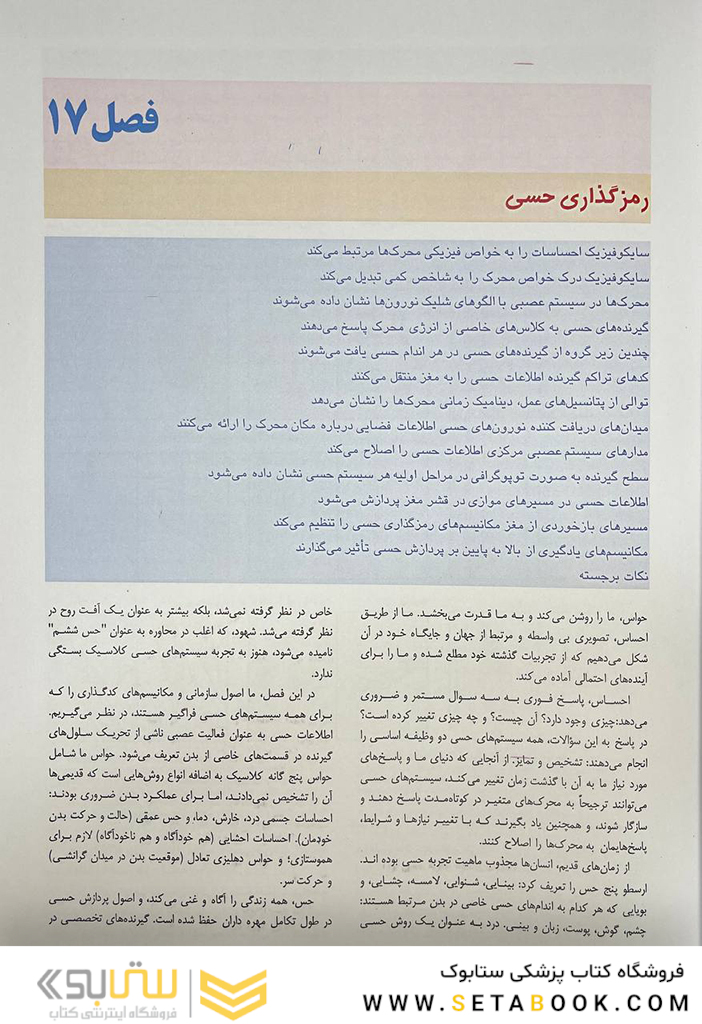 فصل ۱۷
رمزگذاری حسی
سایکوفیزیک احساسات را به خواص فیزیکی محرک‌ها مرتبط می‌کند
سایکوفیزیک درک خواص محرک را به شاخص کمی تبدیل می‌کند
محرک‌ها در سیستم عصبی با الگوهای شلیک نورون‌ها نشان داده می‌شوند
گیرنده‌های حسی به کلاس‌های خاصی از انرژی محرک پاسخ می‌دهند
چندین زیر گروه از گیرنده‌های حسی در هر اندام حسی یافت می‌شوند
کدهای تراکم گیرنده اطلاعات حسی را به مغز منتقل می‌کنند
توالی از پتانسیل‌های عمل، دینامیک زمانی محرک‌ها را نشان می‌دهد
میدان‌های دریافت کننده نورون‌های حسی اطلاعات فضایی درباره مکان محرک را ارائه می‌کنند
مدارهای سیستم عصبی مرکزی اطلاعات حسی را اصلاح می‌کند
سطح گیرنده به صورت توپوگرافی در مراحل اولیه هر سیستم حسی نشان داده می‌شود
اطلاعات حسی در مسیرهای موازی در قشر مغز پردازش می‌شود
مسیرهای بازخوردی از مغز مکانیسم‌های رمزگذاری حسی را تنظیم می‌کند
مکانیسم‌های یادگیری از بالا به پایین بر پردازش حسی تأثیر می‌گذارند
نکات برجسته
حواس، ما را روشن می‌کند و به ما قدرت می‌بخشد. ما از طریق
احساس، تصویری بی واسطه و مرتبط از جهان و جایگاه خود در آن
شکل می‌دهیم که از تجربیات گذشته خود مطلع شده و ما را برای
آینده‌های احتمالی آماده می‌کند.
احساس، پاسخ فوری به سه سوال مستمر و ضروری
می‌دهد:چیزی وجود دارد؟ آن چیست؟ و چه چیزی تغییر کرده است؟
در پاسخ به این سؤالات، همه سیستم‌های حسی دو وظیفه اساسی را
انجام می‌دهند: تشخیص و تمایز. از آنجایی که دنیای ما و پاسخ‌های
مورد نیاز ما به آن با گذشت زمان تغییر می‌کند، سیستم‌های حسی
می‌توانند ترجیحاً به محرک‌های متغیر در کوتاه‌مدت پاسخ دهند و
سازگار شوند، و همچنین یاد بگیرند که با تغییر نیازها و شرایط،
پاسخ‌هایمان به محرک‌ها را اصلاح کنند.
از زمان‌های قدیم، انسان‌ها مجذوب ماهیت تجربه حسی بوده اند.
ارسطو پنج حس را تعریف کرد: بینـایی، شـنوایی، لامسـه، چشـایی، و
بویایی که هر کدام به اندام‌های حسی خاصی در بدن مرتبط هستند:
چشم، گوش، پوست، زبان و بینی. درد به عنوان یک روش حسی
خاص در نظر گرفته نمی‌شد، بلکه بیشتر به عنوان یک آفت روح در
نظر گرفته می‌شد. شهود، که اغلب در محاوره به عنوان "حس ششم"
نامیده می‌شود، هنوز به تجربه سیستم‌های حسی کلاسیک بستگی
ندارد.
در این فصل، ما اصول سازمانی و مکانیسم‌های کدگذاری را که
برای همه سیستم‌های حسی فراگیر هستند، در نظر می‌گیریم.
اطلاعات حسی به عنوان فعالیت عصبی ناشی از تحریک سلول‌های
گیرنده در قسمت‌های خاصی از بدن تعریف می‌شود. حواس ما شامل
حواس پنج گانه کلاسیک به اضافه انواع روش‌هایی است که قدیمی‌ها
آن را تشخیص نمی‌دادند، اما برای عملکرد بدن ضروری بودند:
احساسات جسمی درد، خارش، دما، و حس عمقی (حالت و حرکت بدن
خودمان). احساسات احشایی (هم خودآگاه و هم ناخودآگاه) لازم برای
هموستازی؛ و حواس دهلیزی تعادل (موقعیت بدن در میدان گرانشی)
و حرکت سر.
حس، همه زندگی را آگاه و غنی می‌کند، و اصول پردازش حسی
در طول تکامل مهره داران حفظ شده است. گیرنده‌های تخصصی در
فروشگاه کتاب پزشکی ستابوک
WWW.SETABOOK.COM
ستابوک
فروشگاه اینترنتی کتاب